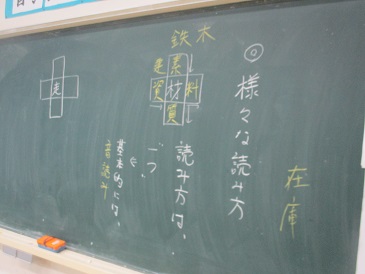 在庫
◎様々な読み方
鉄木
建素
資材料
質
読み方は、
一つ。
基本的には、
音読み
走